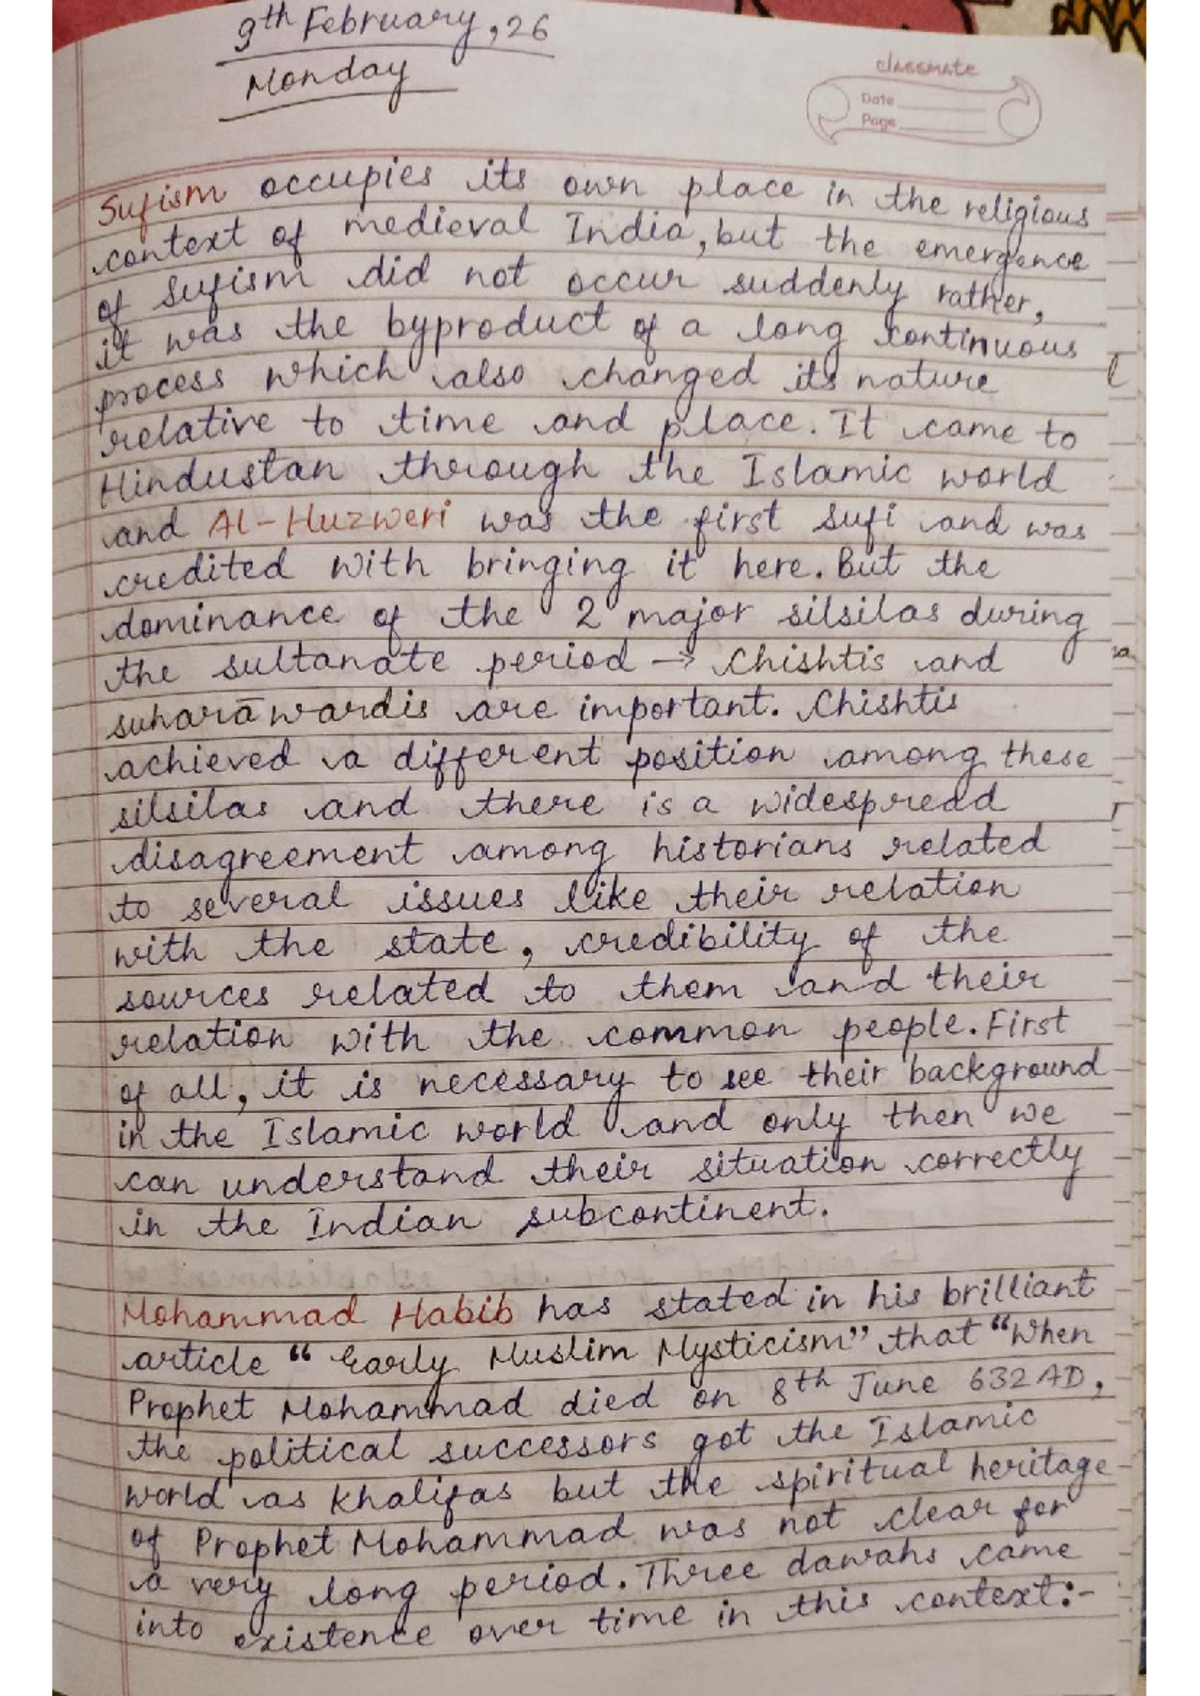 9th February, 26
Monday
classmate
Date
Page
Sufism occupies its own place in the religious
context of medieval India, but the emergence
of Sufism did not occur suddenly rather,
it was the byproduct of a long continuous
process which also changed its nature
relative to time and place. It came to
Hindustan through the Islamic world
and Al-Huzweri was the first sufi and was
credited with bringing it here. But the
dominance of the 2 major silsilas during
the sultanate period → Chishtis and
suharāwardis are important. Chishtis
achieved a different position among these
silsilas and there is a widespread
disagreement among historians related
to several issues like their relation
with the state, credibility of the
sources related to them and their
relation with the common people. First
of all, it is necessary to see their background
in the Islamic world and only then we
can understand their situation correctly
in the Indian subcontinent.
Mohammad Habib has stated in his brilliant
article "Early Muslim Mysticism" that "When
Prophet Mohammad died on 8th June 632 AD,
the political successors got the Islamic
world as Khalifas but the spiritual heritage
of Prophet Mohammad was not clear for
a very long period. Three dawahs came
into existence over time in this context:-